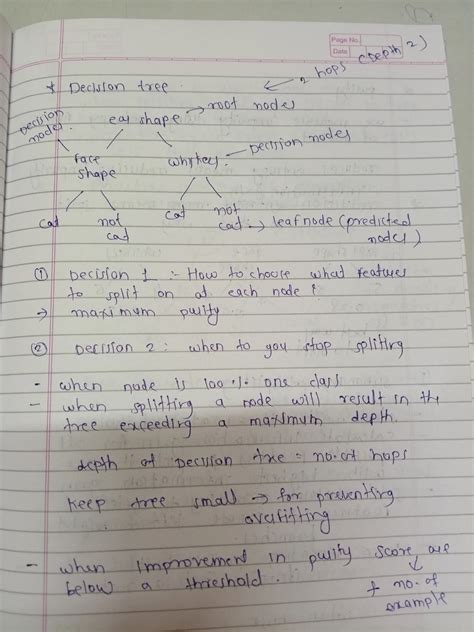 Page No.
Date
2 hops (Depth 2)
* Decision tree.
ear shape → root nodes
Decision nodes.
face shape
whiskey - Decision nodes
cat
not cat
cat
not cat → leaf node (predicted nodes)
① Decision 1 :- How to choose what features
to split on at each node ?
→ maximum purity
② Decision 2 : when to you stop spliting
- when node is 100 % one class
- when splitting a node will result in the
tree exceeding a maximum depth.
depth of decision tree = no. of hops
keep tree small → for preventing
overfitting
- when improvement in purity score are
below a threshold.
+ no. of
example